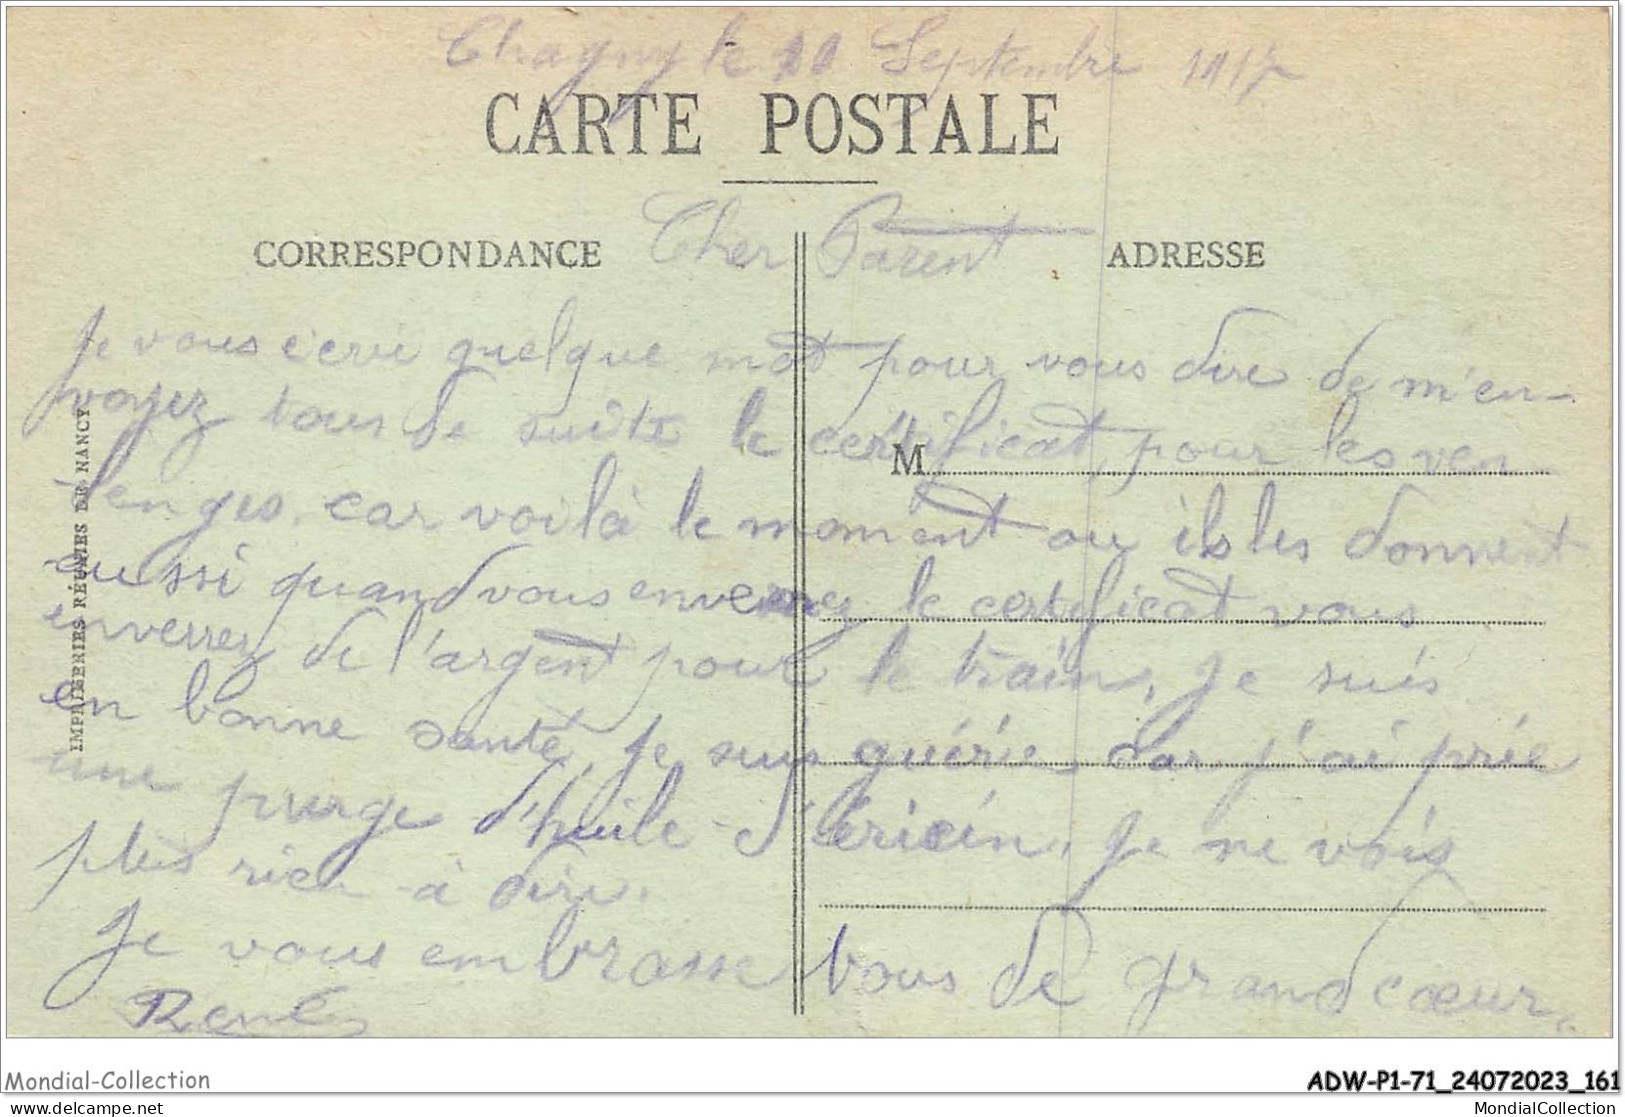 Chagny le 10 Septembre 1917
CARTE POSTALE
CORRESPONDANCE
Cher Parent
ADRESSE
Je vous écrie quelque mot pour vous dire de m'en-
voyez tous de suite le certificat, pour les ven
M
denges, car voilà le moment ou ils les donnent
aussi quand vous enverrez le certificat vous
enverrez de l'argent pour le train, Je suis
en bonne santé, Je suis guérie car j'ai priè
une purge d'huile de ricin, Je ne vois
plus rien à dire.
Je vous embrasse tous de grand cœur,
René
IMPRIMERIES RÉUNIES DE NANCY
Mondial-Collection
ADW-P1-71_24072023_161
MondialCollection.com
MondialCollection